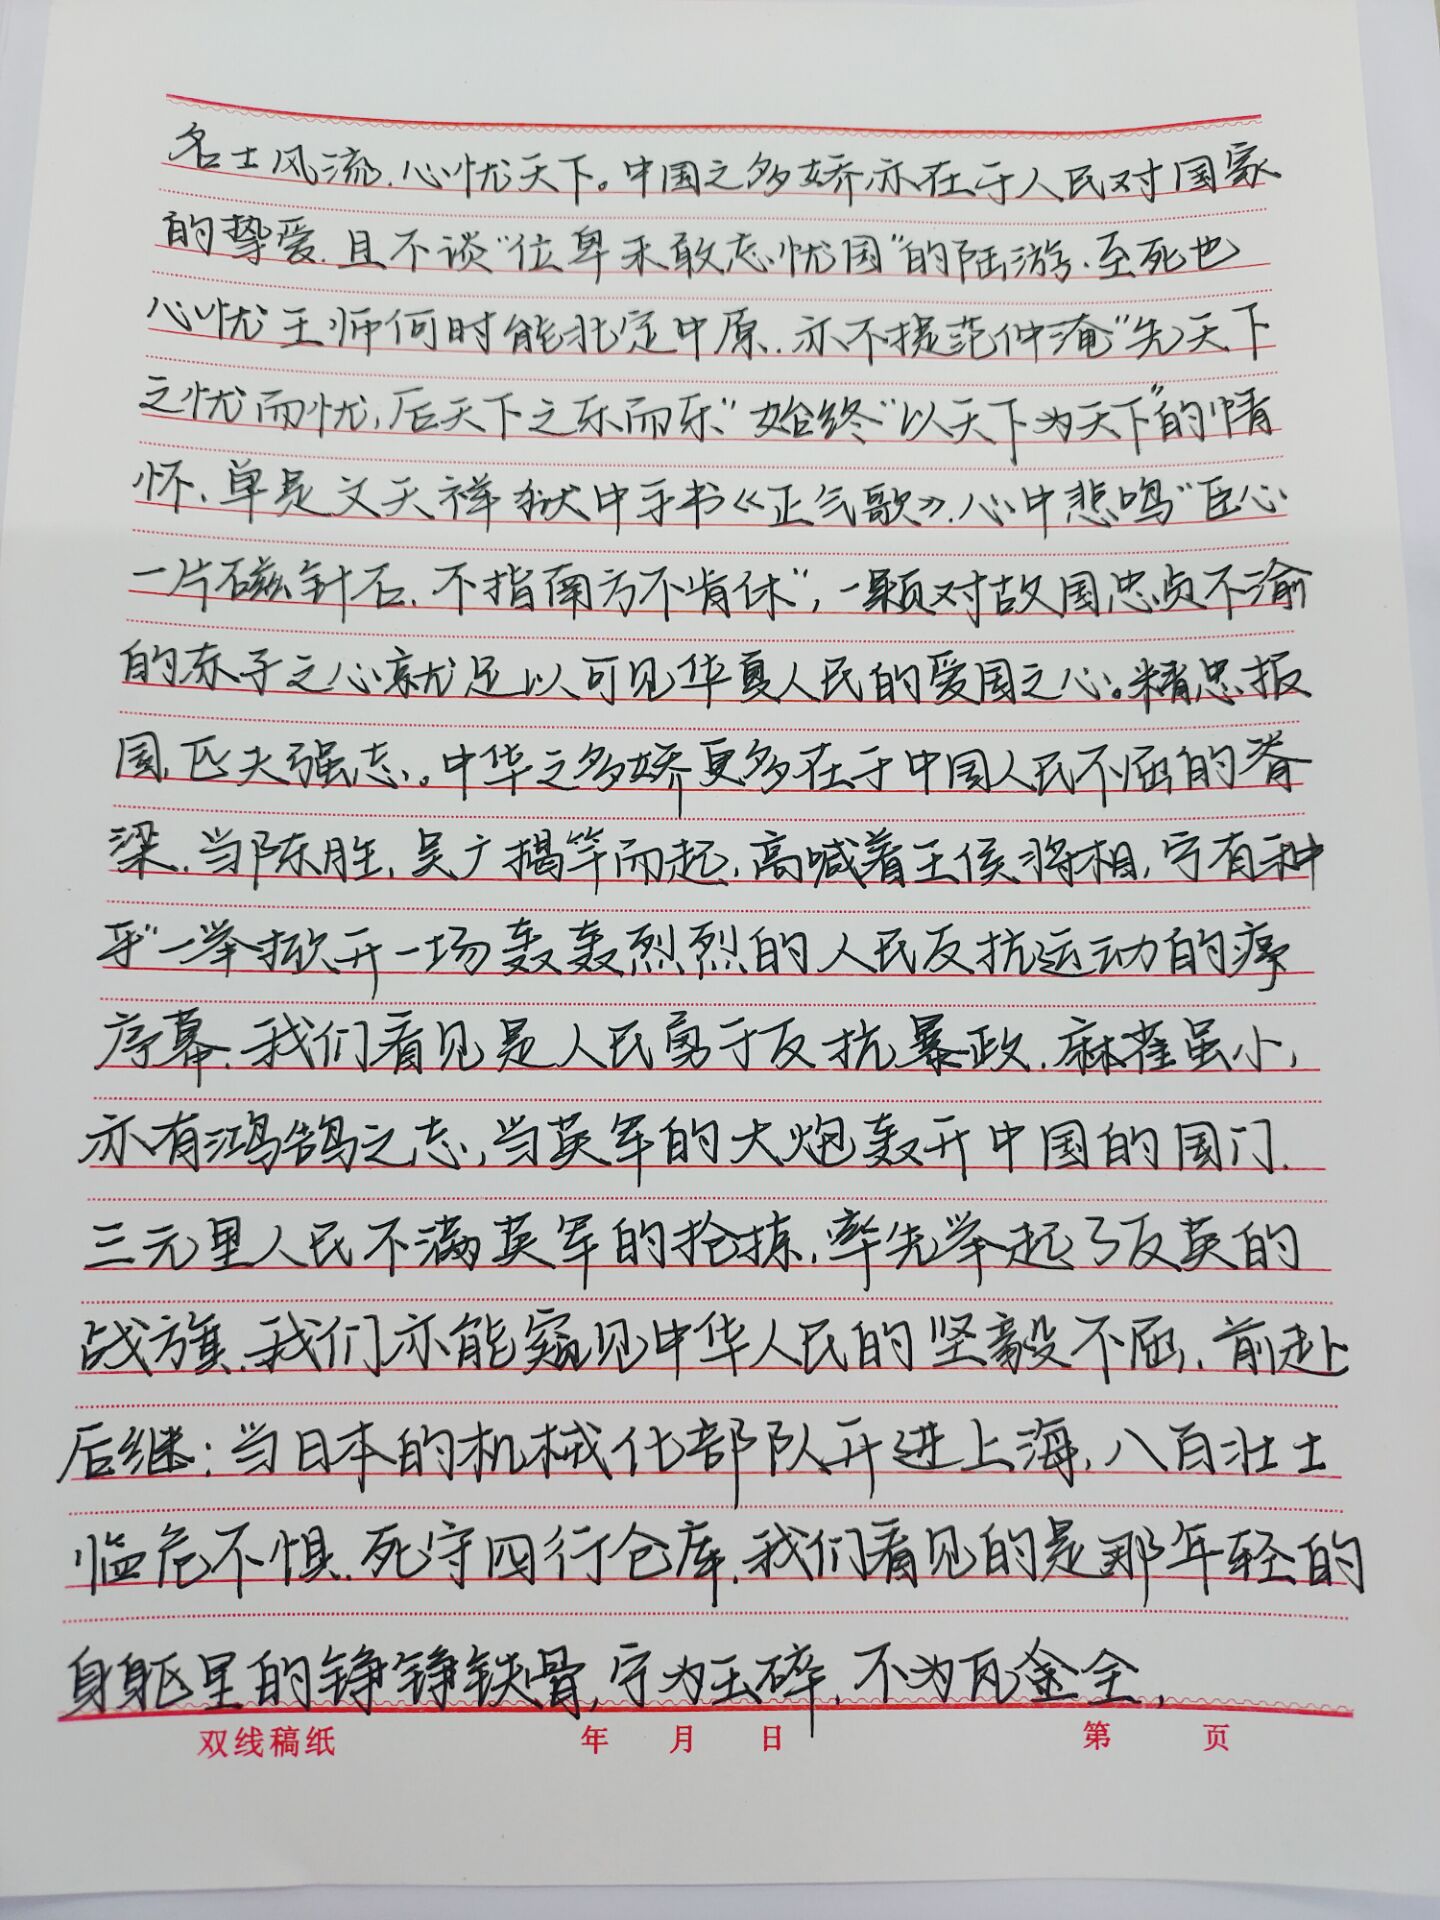 名士风流,心忧天下。中国之多娇亦在于人民对国家
的挚爱,且不谈“位卑未敢忘忧国”的陆游,至死也
心忧王师何时能北定中原,亦不提范仲淹“先天下
之忧而忧,后天下之乐而乐”始终“以天下为天下”的情
怀,单是文天祥狱中手书《正气歌》,心中悲鸣“臣心
一片磁针石,不指南方不肯休”,一颗对故国忠贞不渝
的赤子之心就足以可见华夏人民的爱国之心。精忠报
国,匹夫强志。中华之多娇更多在于中国人民不屈的脊
梁,当陈胜,吴广揭竿而起,高喊着王侯将相,宁有种
乎”一举掀开一场轰轰烈烈的人民反抗运动的序
序幕,我们看见是人民勇于反抗暴政,麻雀虽小,
亦有鸿鹄之志,当英军的大炮轰开中国的国门,
三元里人民不满英军的抢掠,率先举起了反英的
战旗,我们亦能窥见中华人民的坚毅不屈,前赴
后继;当日本的机械化部队开进上海,八百壮士
临危不惧,死守四行仓库,我们看见的是那年轻的
身躯里的铮铮铁骨,宁为玉碎,不为瓦全,
双线稿纸 年 月 日 第 页